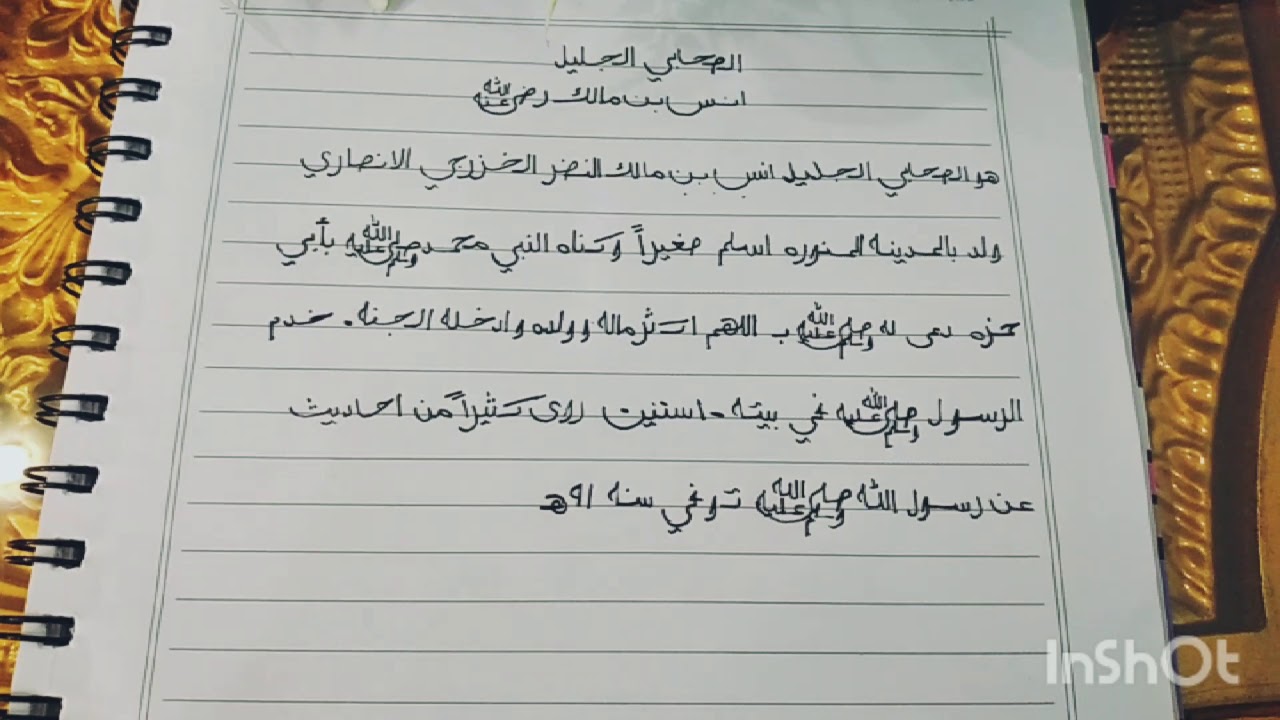 الصحابي الجليل
انس بن مالك رضي الله عنه
هو الصحابي الجليل انس بن مالك النضر الخزرجي الانصاري
ولد بالمدينه المنوره اسلم صغيراً وكناه النبي محمد صلى الله عليه وسلم بأبي
حمزه دعى له صلى الله عليه وسلم ب اللهم اكثر ماله وولده وادخله الجنه. خدم
الرسول صلى الله عليه وسلم في بيته روى كثيراً من احاديث
عن رسول الله صلى الله عليه وسلم توفي سنه ٩١هـ
InShOt